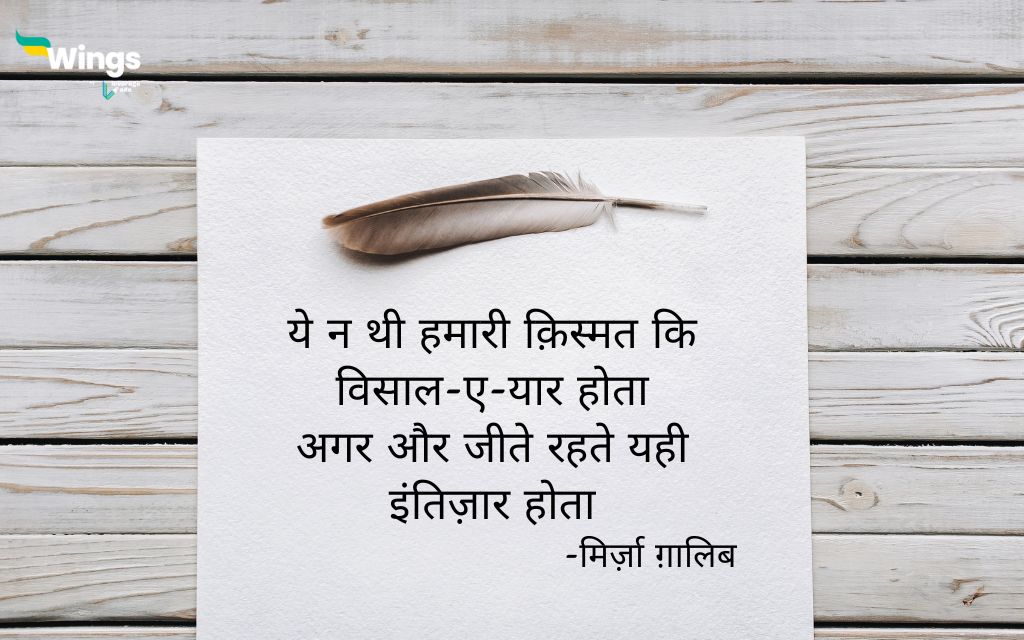 Wings
ये न थी हमारी क़िस्मत कि
विसाल-ए-यार होता
अगर और जीते रहते यही
इंतिज़ार होता
-मिर्ज़ा ग़ालिब